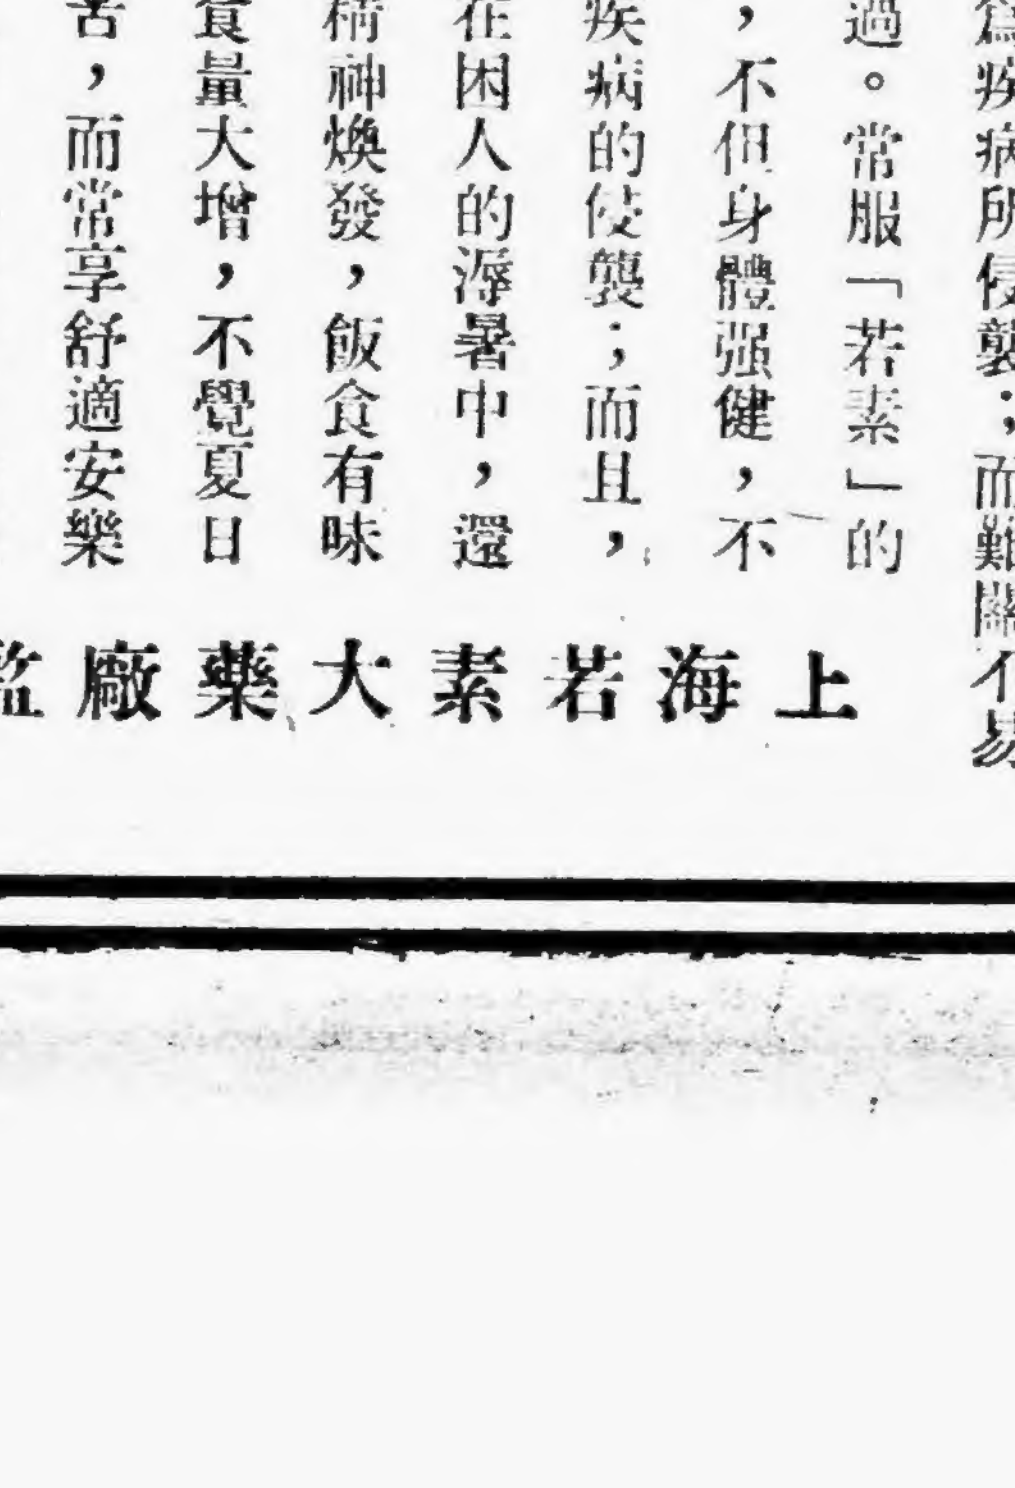 疾病所侵襲；而難關不易
過。常服「若素」的
，不但身體强健，不
疾病的侵襲；而且，
在困人的溽暑中，還
精神煥發，飯食有味
食量大增，不覺夏日
苦，而常享舒適安樂
上海若素大藥廠